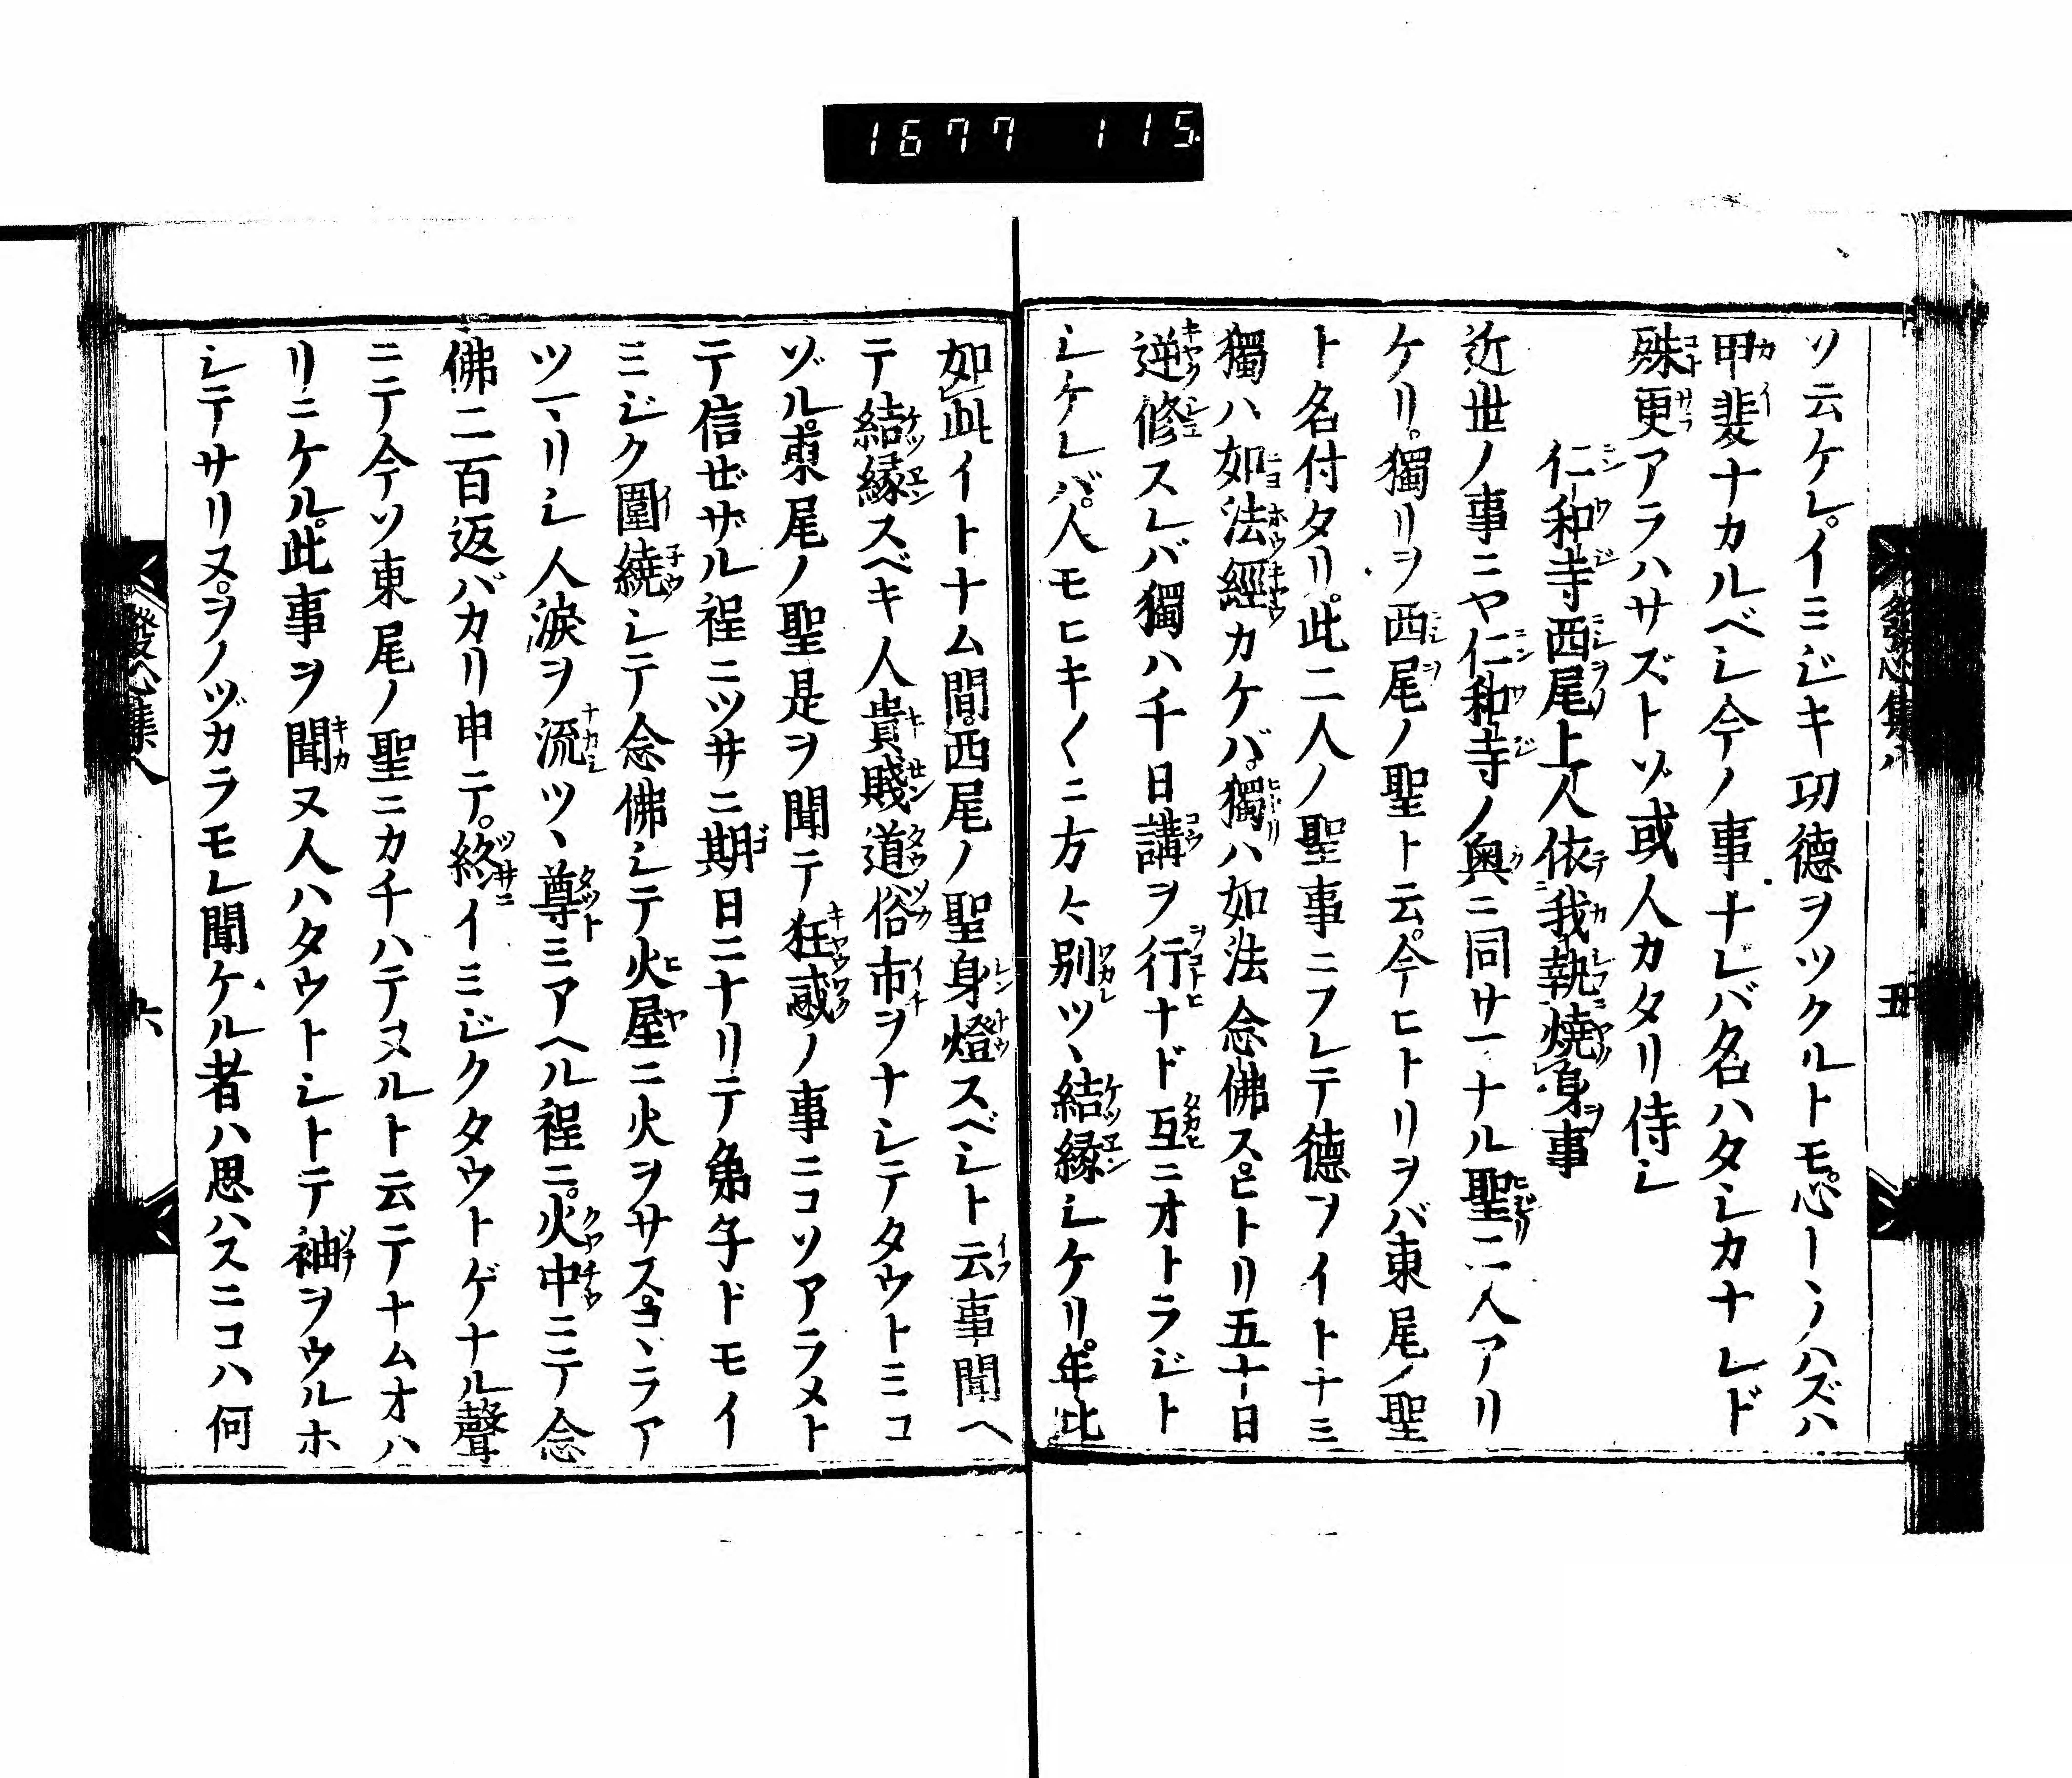 1677 115
ソ云ケレ。イミジキ功德ヲツクルトモ。心トヽノハズハ
甲斐ナカルベシ今ノ事ナレバ名ハタシカナレド
殊更アラハサズトゾ或人カタリ侍シ
仁和寺西尾上人依我執燒身事
近世ノ事ニヤ仁和寺ノ奥ニ同サマナル聖二人アリ
ケリ。獨リヲ西尾ノ聖ト云。今ヒトリヲバ東尾ノ聖
ト名付タリ。此二人ノ聖事ニフレテ德ヲイトナミ
獨ハ如法經カケバ。獨ハ如法念佛ス。ヒトリ五十日
逆修スレバ獨ハ千日講ヲ行ナド互ニオトラジト
シケレバ。人モヒキ〱ニ方々別ツヽ結縁シケリ。年比
發心集八 五
如此イトナム間。西尾ノ聖身燈スベシト云事聞ヘ
テ結縁スベキ人貴賤道俗市ヲナシテタウトミコ
ゾル。東尾ノ聖是ヲ聞テ狂惑ノ事ニコソアラメト
テ信ぜザル程ニツ井ニ期日ニナリテ弟子ドモイ
ミジク圍繞シテ念佛シテ火屋ニ火ヲサス。コヽラア
ツマリシ人淚ヲ流ツヽ尊ミアヘル程ニ。火中ニテ念
佛二百返バカリ申テ。終イミジクタウトゲナル聲
ニテ今ソ東尾ノ聖ニカチハテヌルト云テナムオハ
リニケル。此事ヲ聞ヌ人ハタウトシトテ袖ヲウルホ
シテサリヌ。ヲノヅカラモレ聞ケル者ハ思ハスニコハ何
發心集八 六